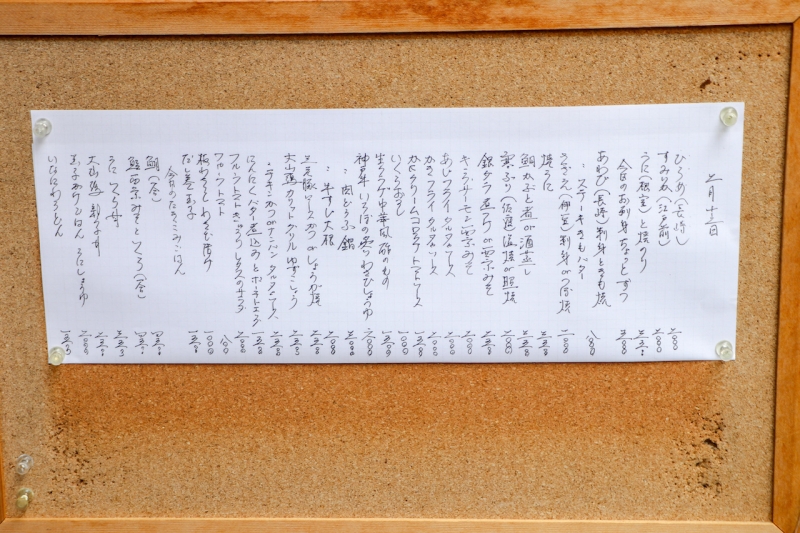 二月十二日
ひらめ(長崎) 二八〇〇
すみいか(江戸前) 二八〇〇
うに(根室)と焼のり 三五〇〇
今日のお刺身ちょっとずつ 三五〇〇
あわび(長崎)刺身ときも焼
〃 ステーキきもバター 八八〇〇
さざえ(神奈川)刺身orつぼ焼 二八〇〇
焼うに 三五〇〇
鯛かぶと煮or酒蒸し 二五〇〇
寒ぶり(佐渡)塩焼or照焼 二八〇〇
銀ダラ煮つけor西京みそ 三五〇〇
キングサーモン西京みそ 二〇〇〇
あじフライタルタルソース 二〇〇〇
かきフライタルタルソース 二〇〇〇
かにクリームコロッケトマトソース 一五〇〇
いくらおろし 一八〇〇
生クラゲ中華風酢のもの 一五〇〇
神戸牛いちぼの炙りわさびじょうゆ 六八〇〇
〃 肉どうふ鍋 三八〇〇
〃 牛すじ大根 二〇〇〇
三元豚ロースかつorしょうが焼 二五〇〇
大山鶏カリットグリルゆずこしょう 二五〇〇
〃 チキンかつorナンバンタルタルソース 二五〇〇
にんにくバター煮込みとポーチドエッグ 一五〇〇
フルーツトマトきゅうりレタスのサラダ 二〇〇〇
フルーツトマト 一八〇〇
板わさ わさび漬け 一〇〇〇
だし巻玉子 一五〇〇
今日のたきこみごはん
鯛(金) 四五〇〇
鮭西京みそといくら(金) 四五〇〇
うに いくら丼 三五〇〇
大山鶏親子丼 二五〇〇
玉子かけごはん うにしょうゆ 二〇〇〇
いなにわうどん 一五〇〇